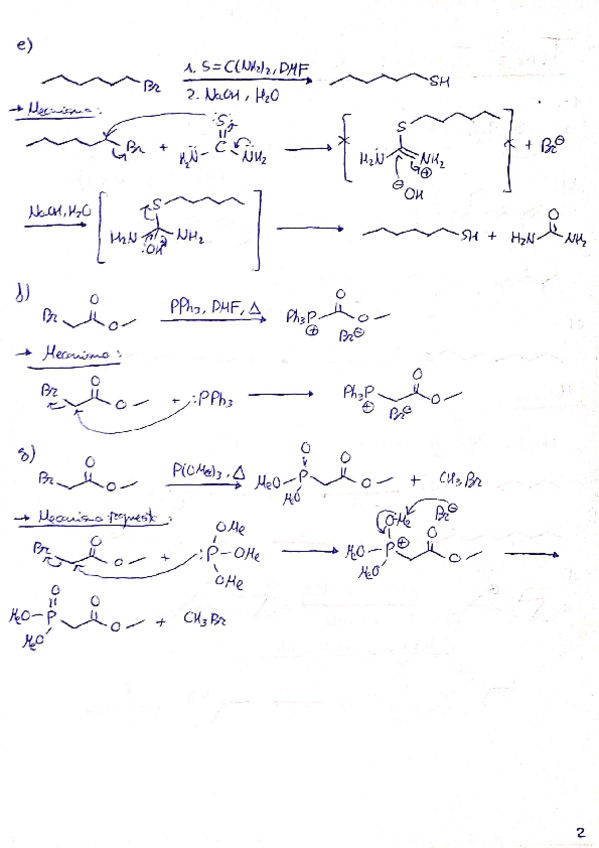 e)
Br 1. S=C(NH₂)₂, DMF SH
2. NaOH, H₂O
→ Mecanismo:
Br + :S: C H₂N̈ N̈H₂ [ S H₂N̈ NH₂ ⊕ ⊖OH ] + Br⊖
NaOH, H₂O [ S H₂N NH₂ :OH ] SH + O H₂N NH₂
f)
Br O O PPh₃, DMF, Δ Ph₃P ⊕ O O Br⊖
→ Mecanismo:
Br O O + :PPh₃ Ph₃P ⊕ O O Br⊖
g)
Br O O P(OMe)₃, Δ O MeO P MeO O O + CH₃Br
→ Mecanismo :
Br O O + :P OMe OMe OMe OMe MeO P⊕ MeO O O Br⊖
MeO O P MeO O O + CH₃Br
2